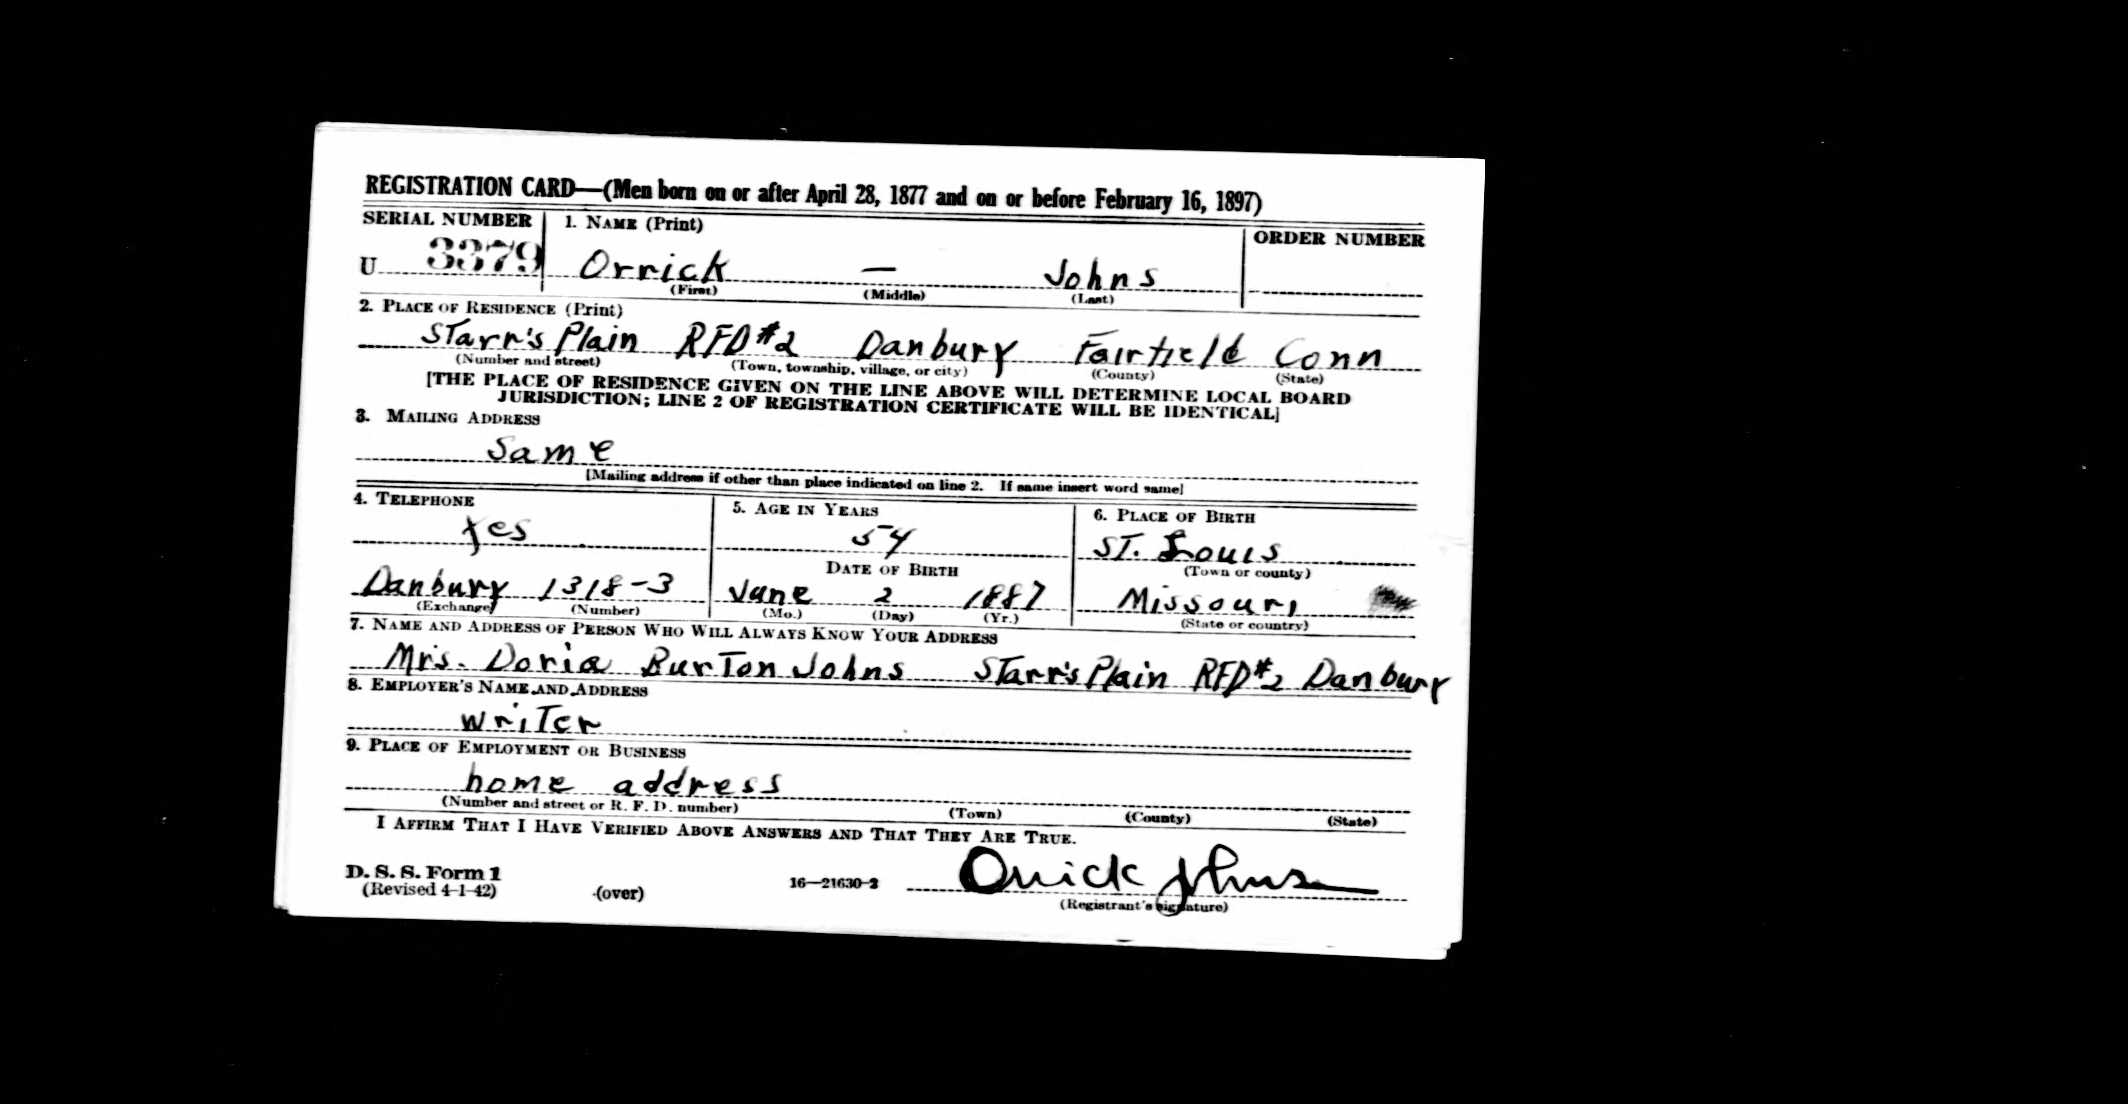 REGISTRATION CARD—(Men born on or after April 28, 1877 and on or before February 16, 1897)
SERIAL NUMBER 1. NAME (Print) ORDER NUMBER
U 3379 Orrick — Johns
(First) (Middle) (Last)
2. PLACE OF RESIDENCE (Print)
Starr's Plain RFD #2 Danbury Fairfield Conn
(Number and street) (Town, township, village, or city) (County) (State)
[THE PLACE OF RESIDENCE GIVEN ON THE LINE ABOVE WILL DETERMINE LOCAL BOARD
JURISDICTION; LINE 2 OF REGISTRATION CERTIFICATE WILL BE IDENTICAL]
3. MAILING ADDRESS
Same
[Mailing address if other than place indicated on line 2. If same insert word same]
4. TELEPHONE 5. AGE IN YEARS 6. PLACE OF BIRTH
Yes 54 ST. Louis
DATE OF BIRTH (Town or county)
Danbury 1318-3 June 2 1887 Missouri
(Exchange) (Number) (Mo.) (Day) (Yr.) (State or country)
7. NAME AND ADDRESS OF PERSON WHO WILL ALWAYS KNOW YOUR ADDRESS
Mrs. Doria Burton Johns Starr's Plain RFD #2 Danbury
8. EMPLOYER'S NAME AND ADDRESS
writer
9. PLACE OF EMPLOYMENT OR BUSINESS
home address
(Number and street or R. F. D. number) (Town) (County) (State)
I AFFIRM THAT I HAVE VERIFIED ABOVE ANSWERS AND THAT THEY ARE TRUE.
D. S. S. Form 1
(Revised 4-1-42) (over) 16—21630-2 Orrick Johns
(Registrant's signature)